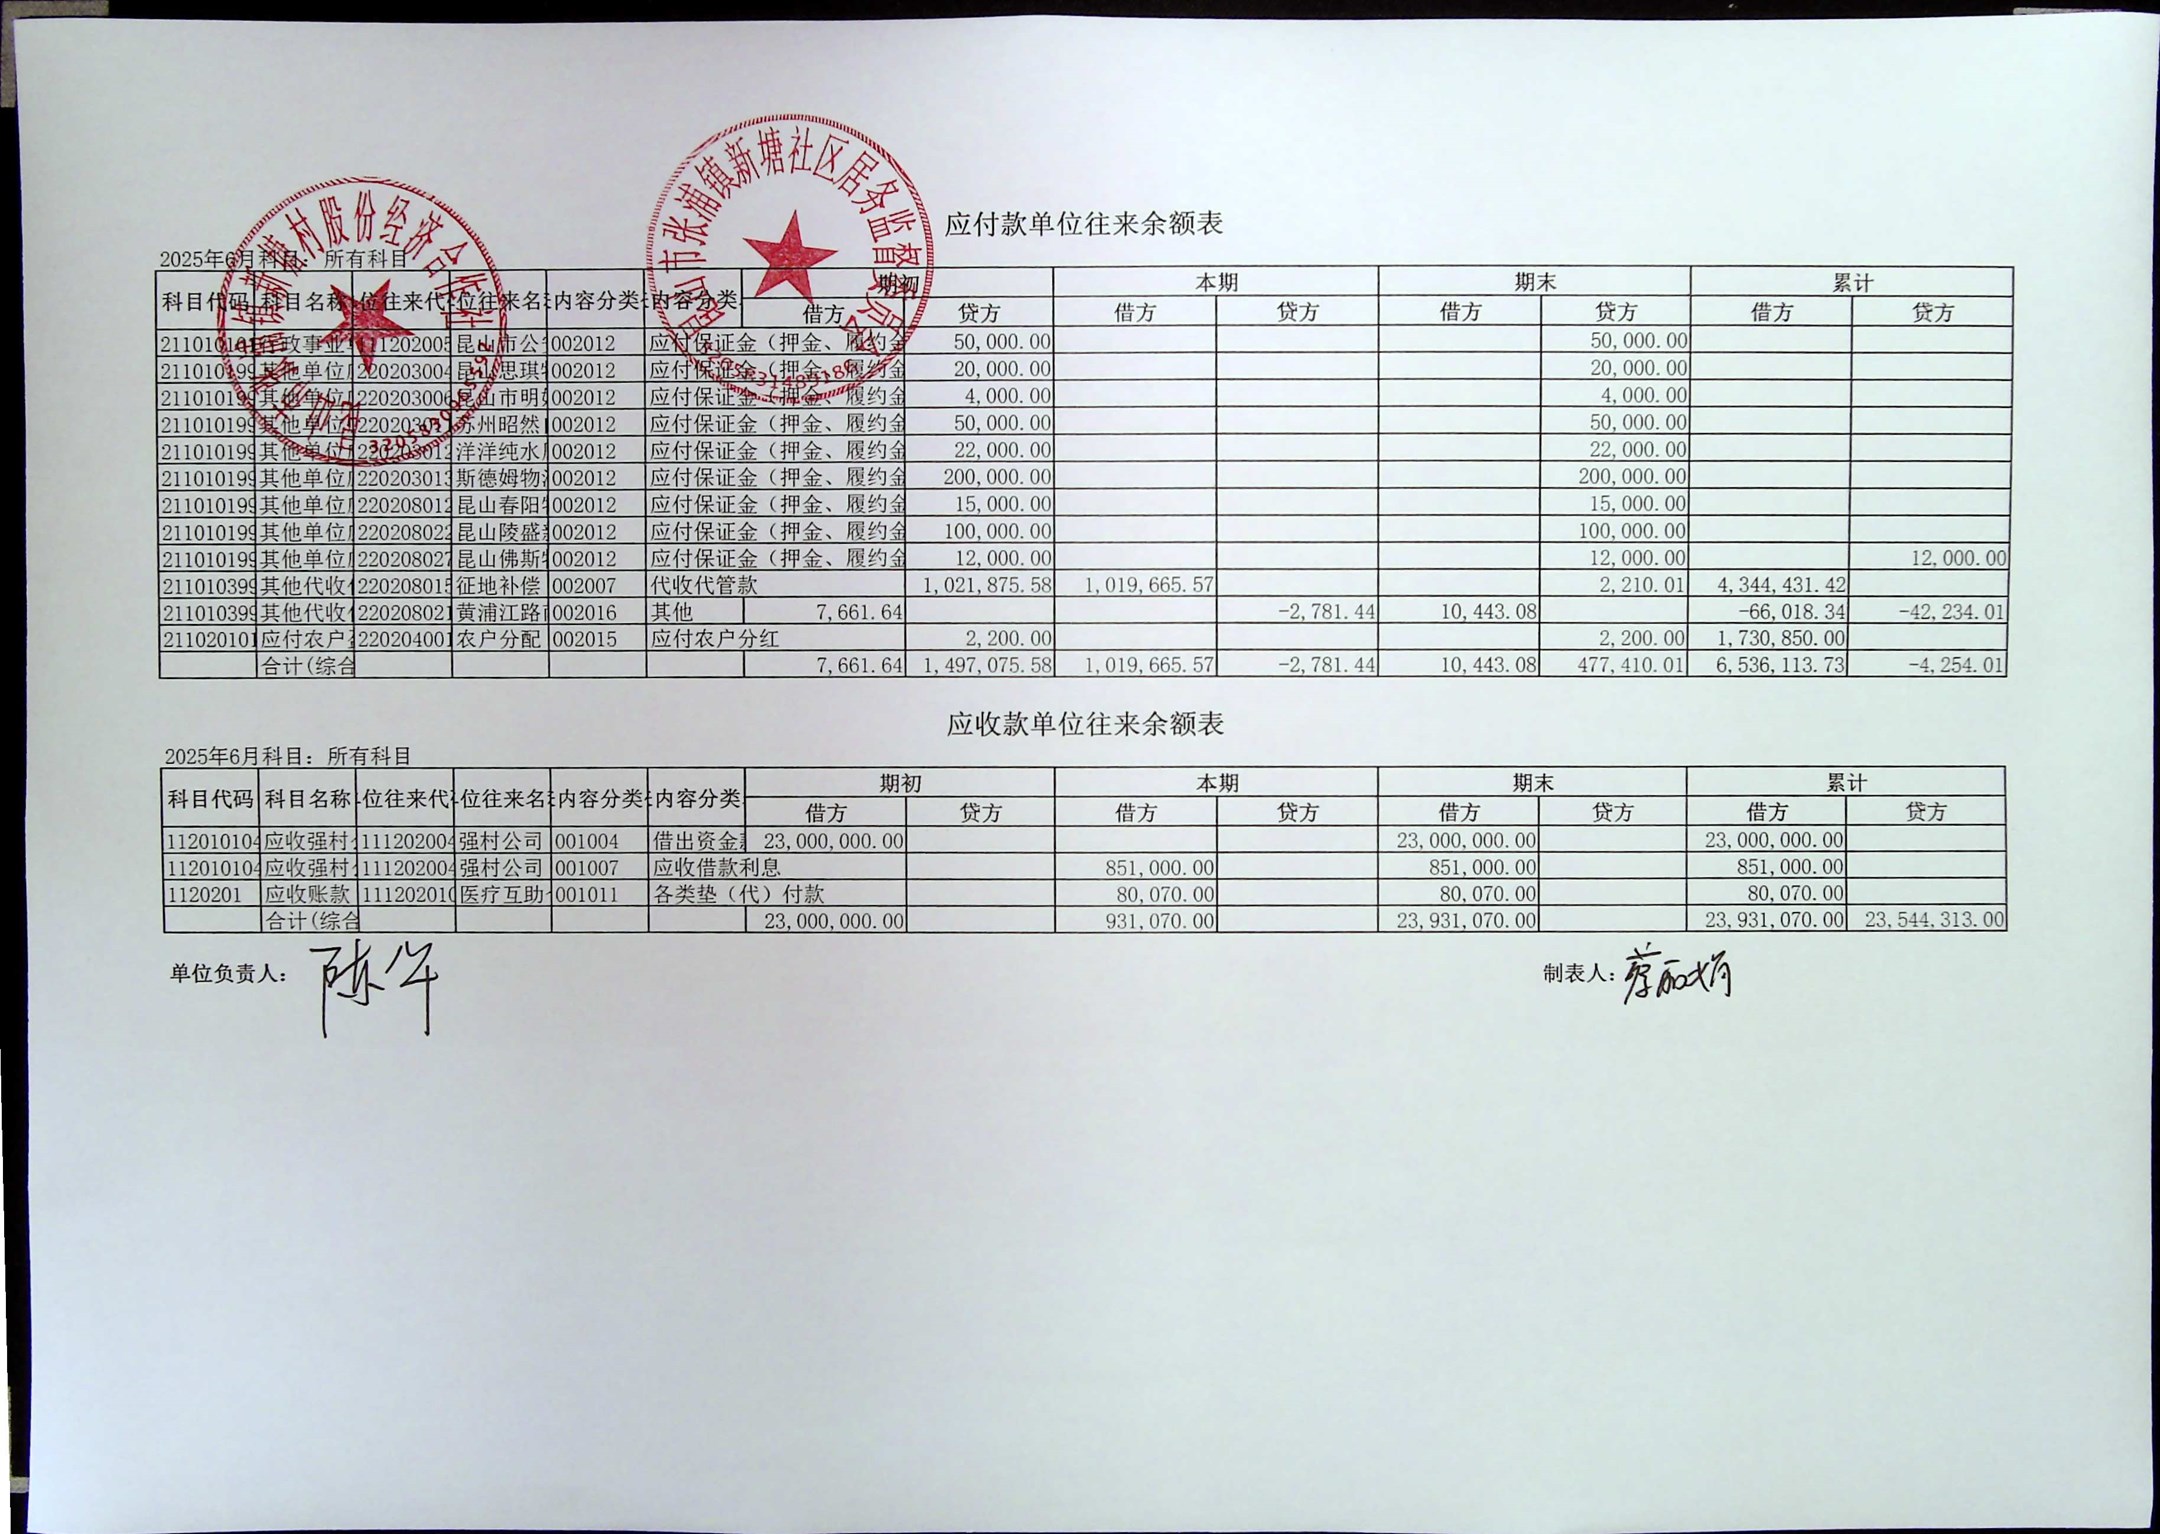 应付款单位往来余额表
2025年6月科目：所有科目
科目代码 科目名称 位往来代 位往来名 内容分类 内容分类 期初 本期 期末 累计
借方 贷方 借方 贷方 借方 贷方 借方 贷方
政事业 111202005 昆山市公 002012 应付保证金（押金、履约金 50,000.00 50,000.00
211010199 其他单位 220203004 昆山思琪 002012 应付保证金（押金、履约金 20,000.00 20,000.00
其他单位 220203006 昆山市明 002012 应付保证金（押金、履约金 4,000.00 4,000.00
211010199 其他单位 苏州昭然 002012 应付保证金（押金、履约金 50,000.00 50,000.00
211010199 其他单位 220203012 洋洋纯水 002012 应付保证金（押金、履约金 22,000.00 22,000.00
211010199 其他单位 220203013 斯德姆物 002012 应付保证金（押金、履约金 200,000.00 200,000.00
211010199 其他单位 220208012 昆山春阳 002012 应付保证金（押金、履约金 15,000.00 15,000.00
211010199 其他单位 220208022 昆山陵盛 002012 应付保证金（押金、履约金 100,000.00 100,000.00
211010199 其他单位 220208027 昆山佛斯 002012 应付保证金（押金、履约金 12,000.00 12,000.00 12,000.00
211010399 其他代收 220208015 征地补偿 002007 代收代管款 1,021,875.58 1,019,665.57 2,210.01 4,344,431.42
211010399 其他代收 220208021 黄浦江路 002016 其他 7,661.64 -2,781.44 10,443.08 -66,018.34 -42,234.01
211020101 应付农户 220204001 农户分配 002015 应付农户分红 2,200.00 2,200.00 1,730,850.00
合计(综合 7,661.64 1,497,075.58 1,019,665.57 -2,781.44 10,443.08 477,410.01 6,536,113.73 -4,254.01
应收款单位往来余额表
2025年6月科目：所有科目
科目代码 科目名称 位往来代 位往来名 内容分类 内容分类 期初 本期 期末 累计
借方 贷方 借方 贷方 借方 贷方 借方 贷方
112010104 应收强村 111202004 强村公司 001004 借出资金 23,000,000.00 23,000,000.00 23,000,000.00
112010104 应收强村 111202004 强村公司 001007 应收借款利息 851,000.00 851,000.00 851,000.00
1120201 应收账款 111202010 医疗互助 001011 各类垫（代）付款 80,070.00 80,070.00 80,070.00
合计(综合 23,000,000.00 931,070.00 23,931,070.00 23,931,070.00 23,544,313.00
单位负责人： 制表人：
昆山市张浦镇新塘社区居务监督委员会
村股份经济合作社